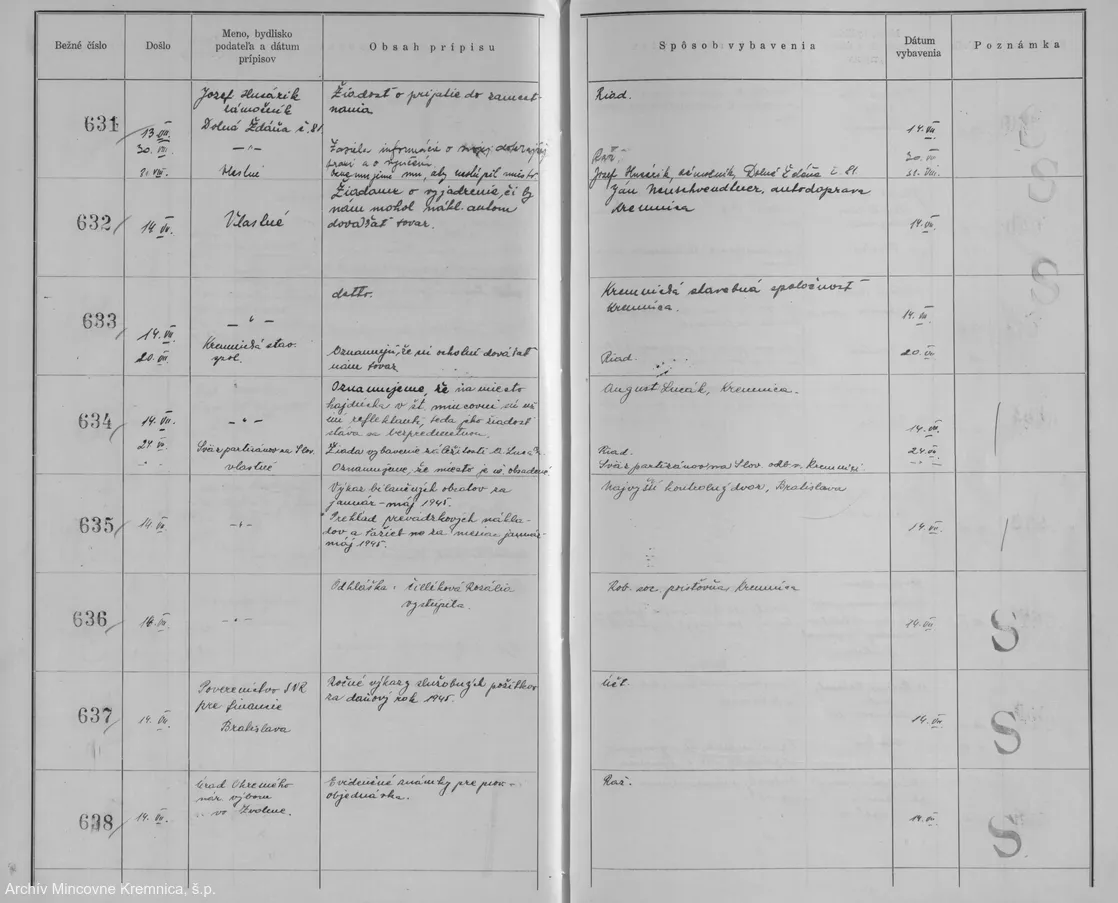 Bežné číslo
Došlo
Meno, bydlisko
podateľa a dátum
prípisov
Obsah prípisu
Spôsob vybavenia
Dátum
vybavenia
Poznámka
631
13. VII.
Jozef Husárik
zámočník
Dolná Ždáňa č. 81
Žiadosť o prijatie do zamest-
nania
Riad.
14. VII
30. VII
— " —
Zasiela informácie o
30. VII
31. VIII.
Vlastné
mu, aby
Jozef Husárik, zámočník, Dolná Ždáňa č. 81
31. VIII.
632
14 VII.
Vlastné
Žiadame o vyjadrenie, či by
nám mohol nákl. autom
dovážať tovar.
Ján Neuschvendtner, autodoprava
Kremnica
14. VII.
633
14. VII.
— " —
detto.
Kremnická stavebná spoločnosť
Kremnica.
14. VII
20. VII
Kremnická stav.
spol.
Oznamujú, že sú ochotní dovážať
nám tovar
Riad.
20. VII
634
14. VII.
— " —
Oznamujeme, že na miesto
hajdúcha v št. mincovni sú
reflektanti, teda jeho žiadosť
stáva sa bezpredmetnou.
August Lucák, Kremnica.
14. VII.
24 VII
Sväz partizánov na Slov.
Žiada vybavenie záležitosti A. Lucák
Riad.
24. VII
— " —
vlastné
Oznamujeme, že miesto je už obsadené.
Sväz partizánov na Slov. odb. v Kremnici
— " —
635
14. VII.
— " —
Výkaz bilančných obratov za
január – máj 1945.
Prehľad prevádzkových nákla-
dov a tažieb no za mesiac január-
máj 1945.
Najvyšší kontrolný dvor, Bratislava
14. VII
636
14. VII.
— " —
Odhláška. Čilléková Rozália
vystúpila.
Rob. soc. poisťovňa Kremnica
14. VII
S
637
14. VII.
Povereníctvo SNR
pre financie
Bratislava
Ročné výkazy služobných požitkov
za daňový rok 1945.
Účt.
14. VII
S
638
14. VII.
Úrad Okresného
nár. výboru
vo Zvolene.
Evidenčné známky pre psov -
objednávka.
14. VII
S
Archív Mincovne Kremnica, š.p.